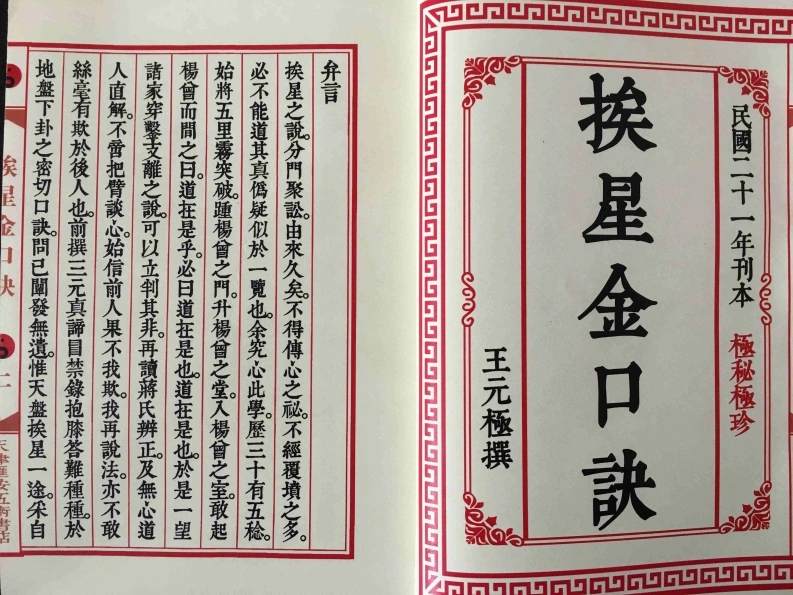 民國二十一年刊本 極秘極珍
挨星金口訣
王元極撰
弁言
挨星之說。分門聚訟。由來久矣。不得傳心之祕。不經覆墳之多。
必不能道其真僞疑似於一覽也。余究心此學。歷三十有五稔。
始將五里霧突破。踵楊曾之門。升楊曾之堂。入楊曾之室。敢起
楊曾而問之曰。道在是乎。必曰道在是也。道在是也。於是一望
諸家穿鑿支離之說。可以立判其非。再讀蔣氏辨正。及無心道
人直解。不啻把臂談心。始信前人果不我欺。我再說法。亦不敢
絲毫有欺於後人也。前撰三元真諦冒禁錄抱膝答難種種。於
地盤下卦之密切口訣。問已闡發無遺。惟天盤挨星一途。采自
挨星金口訣